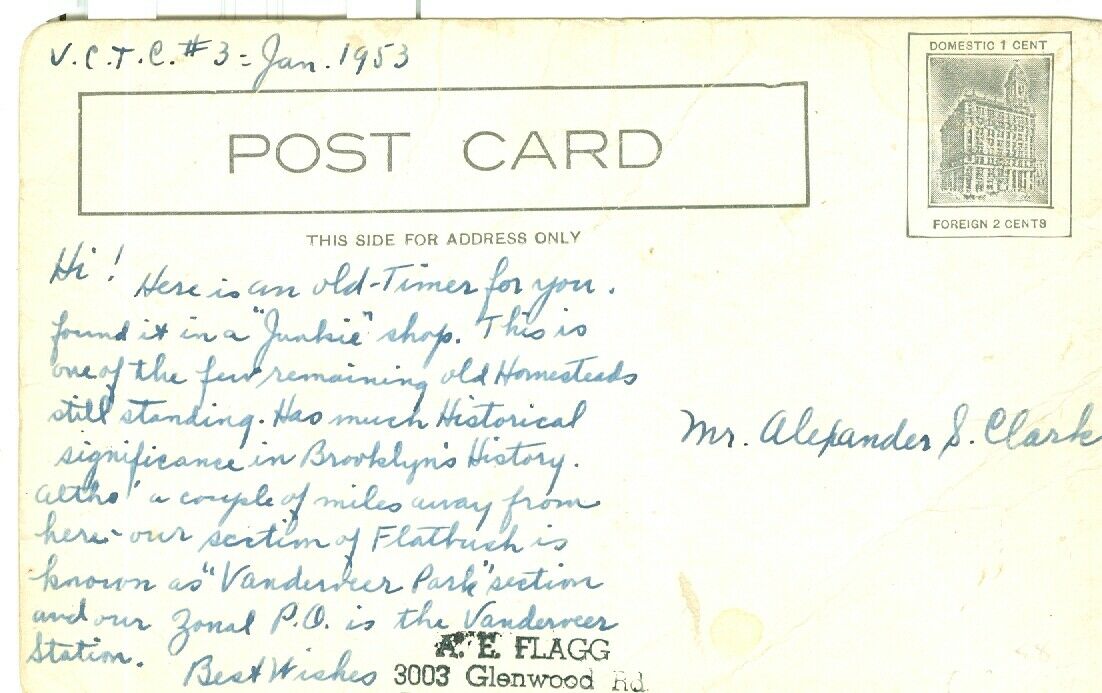 V.C.T.C. #3 = Jan. 1953
POST CARD
DOMESTIC 1 CENT
FOREIGN 2 CENTS
THIS SIDE FOR ADDRESS ONLY
Hi!
Here is an old-Timer for you.
found it in a "Junkie" shop. This is
one of the few remaining old Homesteads
still standing. Has much Historical
significance in Brooklyn's History.
altho' a couple of miles away from
here - our section of Flatbush is
known as "Vanderveer Park" section
and our Zonal P.O. is the Vanderveer
Station.
Best Wishes
A. E. FLAGG
3003 Glenwood Rd.
Mr. Alexander S. Clark